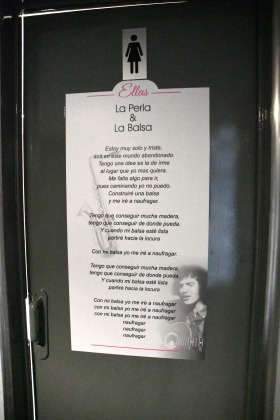 Ellas
La Perla
&
La Balsa
Estoy muy solo y triste,
acá en este mundo abandonado.
Tengo una idea es la de irme
al lugar que yo mas quiera.
Me falta algo para ir,
pues caminando yo no puedo.
Construiré una balsa
y me iré a naufragar.
Tengo que conseguir mucha madera,
tengo que conseguir de donde pueda.
Y cuando mi balsa esté lista
partiré hacia la locura
Con mi balsa yo me iré a naufragar.
Tengo que conseguir mucha madera,
tengo que conseguir de donde pueda
Y cuando mi balsa esté lista
partiré hacia la locura
Con mi balsa yo me iré a naufragar
con mi balsa yo me iré a naufragar
con mi balsa yo me iré a naufragar
naufragar
naufragar
naufragar